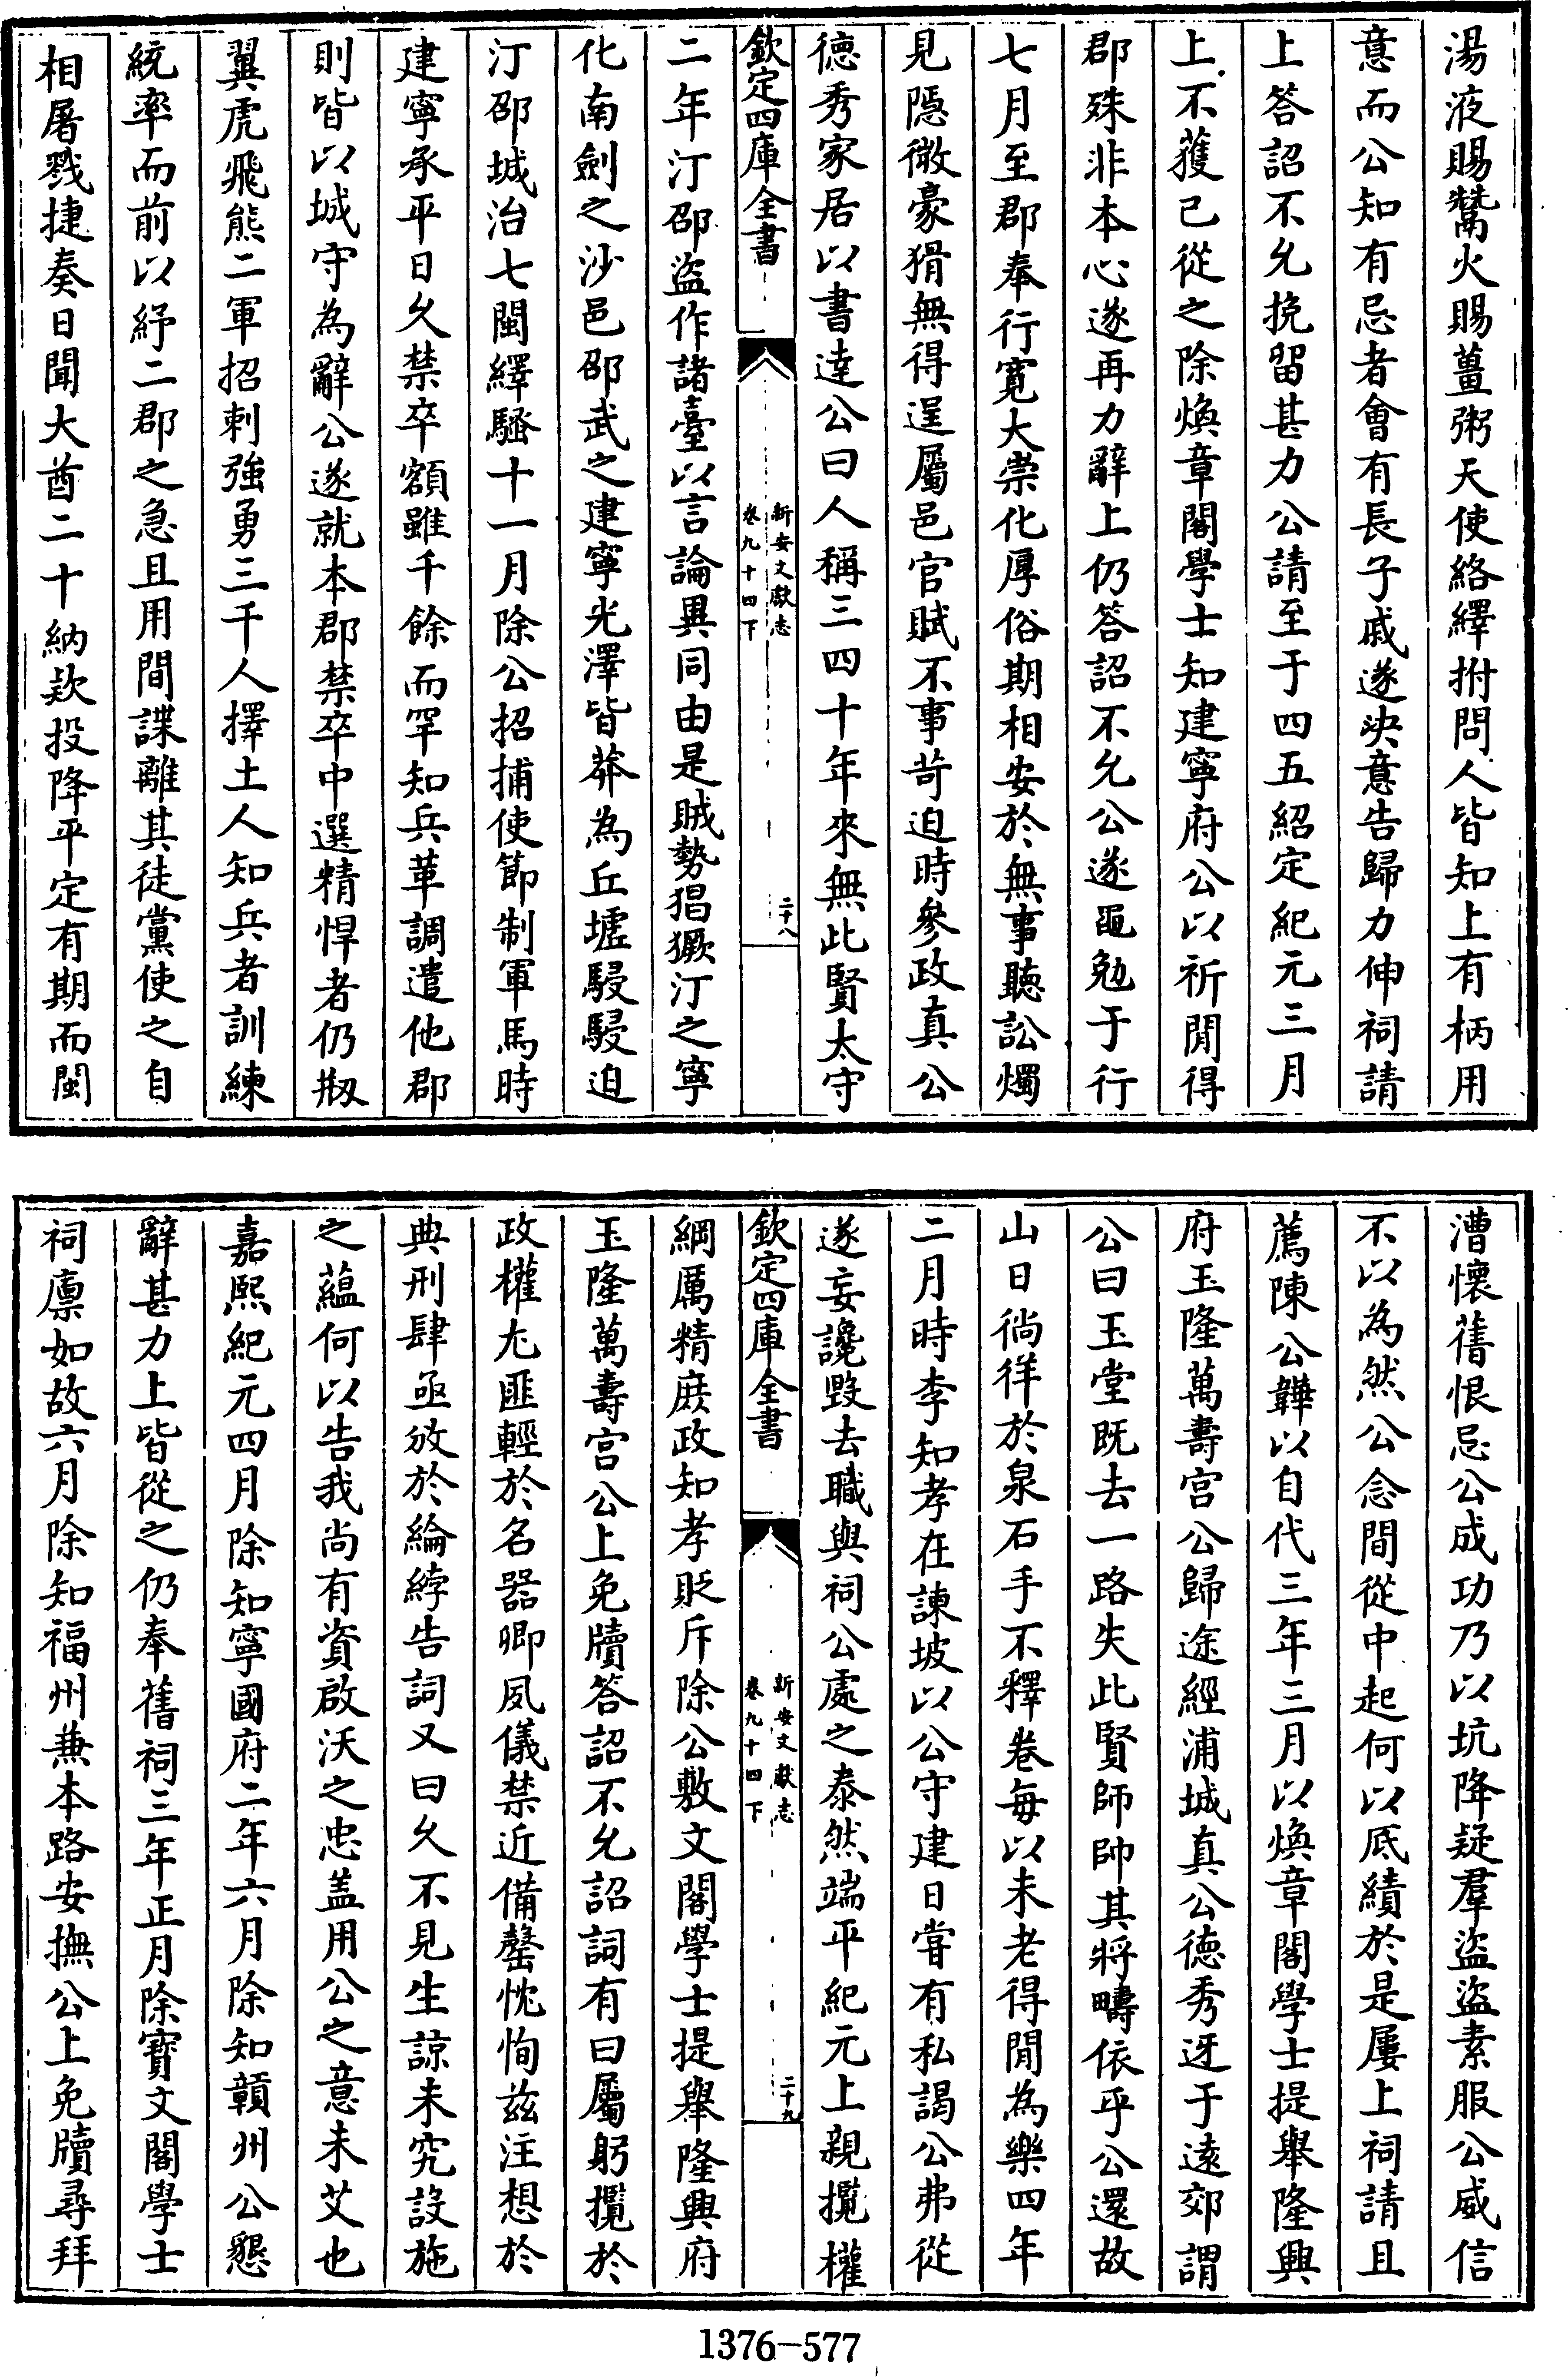 湯液賜鷰火賜薑粥天使絡繹拊問人皆知上有柄用
意而公知有忌者會有長子戚遂決意告歸力伸祠請
上答詔不允挽留甚力公請至于四五紹定紀元三月
上不獲已從之除煥章閣學士知建寧府公以祈閒得
郡殊非本心遂再力辭上仍答詔不允公遂黽勉于行
七月至郡奉行寛大崇化厚俗期相安於無事聽訟燭
見隠微豪猾無得逞屬邑官賦不事苛迫時參政真公
德秀家居以書達公曰人稱三四十年來無此賢太守
欽定四庫全書
新安文獻志
卷九十四下
二十八
二年汀邵盜作諸臺以言論異同由是賊勢猖獗汀之寧
化南劍之沙邑邵武之建寧光澤皆莽為丘墟駸駸迫
汀邵城治七閩繹騷十一月除公招捕使節制軍馬時
建寧承平日久禁卒額雖千餘而罕知兵革調遣他郡
則皆以城守為辭公遂就本郡禁卒中選精悍者仍剏
翼虎飛熊二軍招刺強勇三千人擇土人知兵者訓練
統率而前以紓二郡之急且用間諜離其徒黨使之自
相屠戮捷奏日聞大酋二十納欵投降平定有期而閩
漕懷舊恨忌公成功乃以坑降疑羣盜盜素服公威信
不以為然公念間從中起何以底績於是屢上祠請且
薦陳公韡以自代三年三月以煥章閣學士提舉隆興
府玉隆萬壽宫公歸途經浦城真公德秀迓于遠郊謂
公曰玉堂既去一路失此賢師帥其將疇依乎公還故
山日徜徉於泉石手不釋卷每以未老得閒為樂四年
二月時李知孝在諫坡以公守建日嘗有私謁公弗從
遂妄讒毀去職與祠公處之泰然端平紀元上親攬權
欽定四庫全書
新安文獻志
卷九十四下
二十九
綱厲精庻政知孝貶斥除公敷文閣學士提舉隆興府
玉隆萬壽宫公上免牘答詔不允詔詞有曰屬躬攬於
政權尢匪輕於名器卿夙儀禁近備罄忱恂兹注想於
典刑肆亟攽於綸綍告詞又曰久不見生諒未究設施
之蘊何以告我尚有資啟沃之忠盖用公之意未艾也
嘉熙紀元四月除知寧國府二年六月除知贑州公懇
辭甚力上皆從之仍奉舊祠三年正月除寶文閣學士
祠廪如故六月除知福州兼本路安撫公上免牘尋拜
1376-577